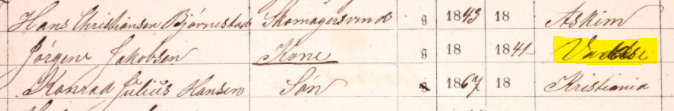 Hans Christiansen Bjørnestad Skomagersvend g 1843 18 Askim
Jørgine Jakobsen Kone g 18 1841
Konrad Julius Hansen Søn 1867 18 Kristiania